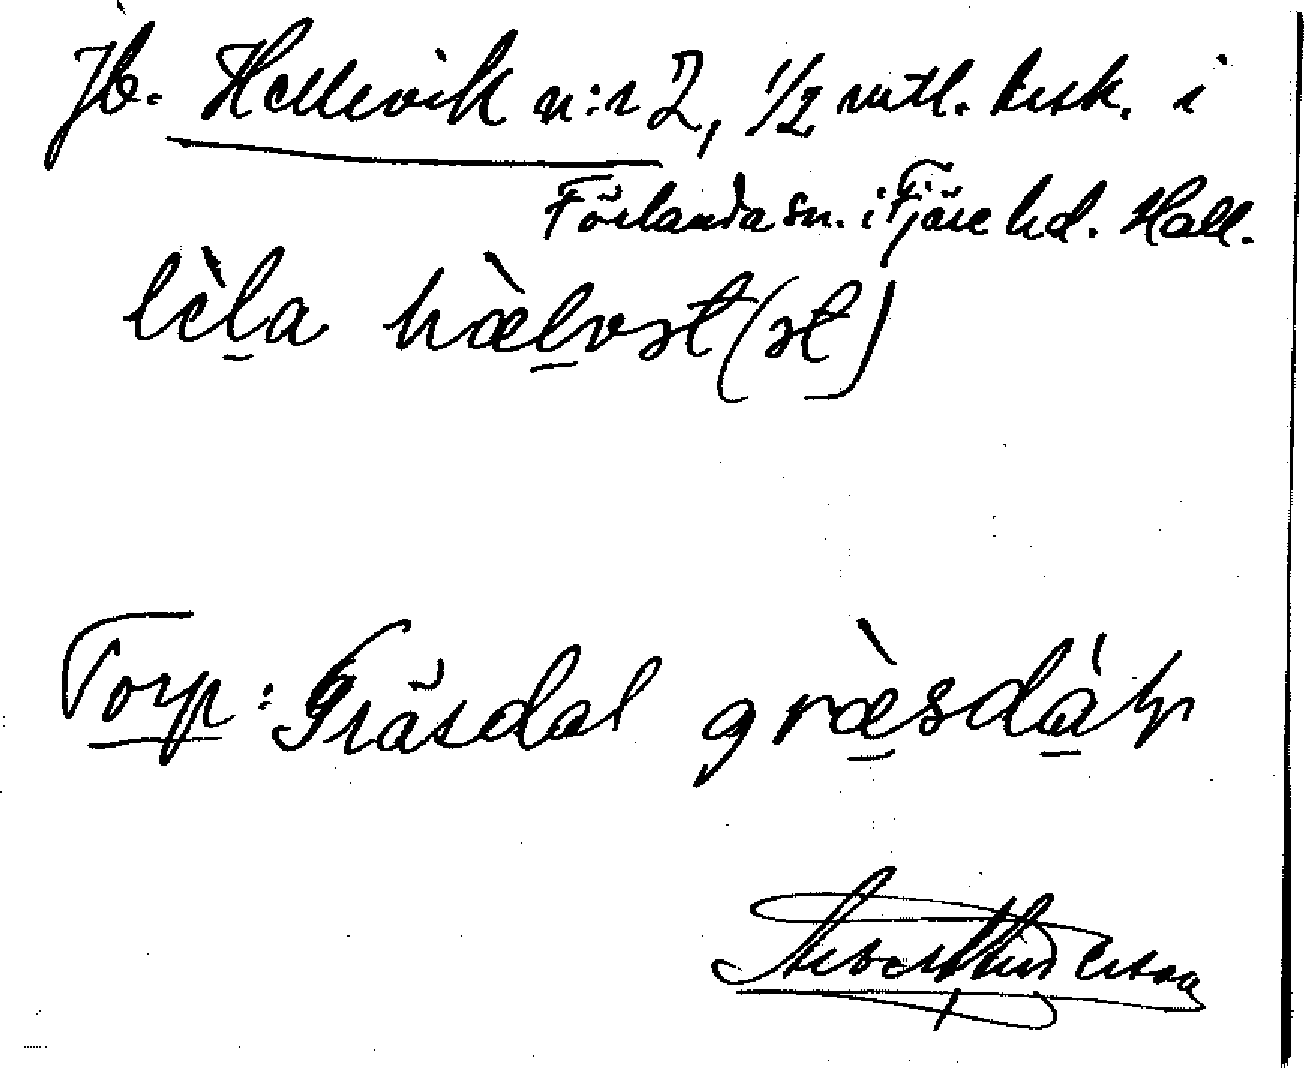 Jb. Hellevik n:r 2, 1/2 mtl. krsk. i
Förlanda sn. i Fjäre hd. Hall.
lèla hælvst (st)
Torp: Gräsdal græsdáln